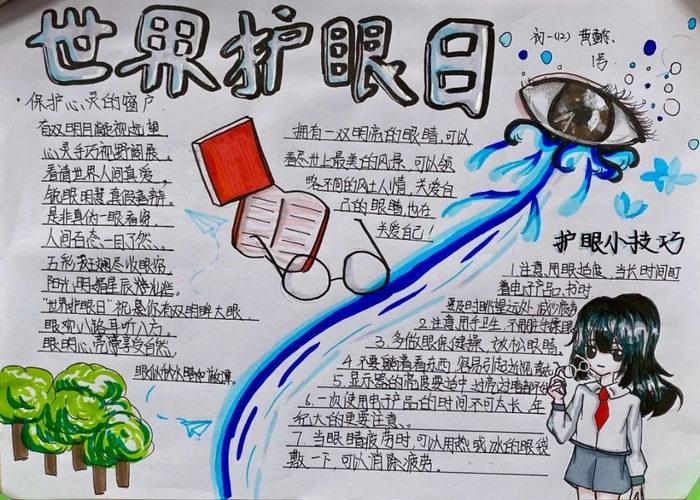 世界护眼日
初一(2) 黄
1号
·保护心灵的窗户
有双明目凝视远望
心灵手巧视野阔展。
看清世界人间真爱,
锐眼明慧真假善辩。
是非真伪一眼看穿
人间百态一目了然、
五彩斑斓尽收眼帘
阳光明媚星辰灿烂。
"世界护眼日"祝愿你有双明眸大眼
眼观六路耳听八方
眼明心亮尊享受自然
眼似秋水
拥有一双明亮的眼睛,可以
看尽世上最美的风景,可以领
略不同的风土人情,关爱自
己的眼睛,也在
关爱自己!
护眼小技巧
1.注意用眼适度,当长时间盯
着电子产品、书时
要及时眺望远处,减少疲劳
2.注意用手卫生,不用脏手揉眼
3.多做眼保健操,放松眼睛。
4.不要躺着看东西,容易引起近视
5.显示器的高度要适中
6.一次使用电子产品的时间不可太长,年
纪大的更要注意。
7.当眼睛疲劳时,可以用热或冰的眼袋
敷一下,可以消除疲劳。